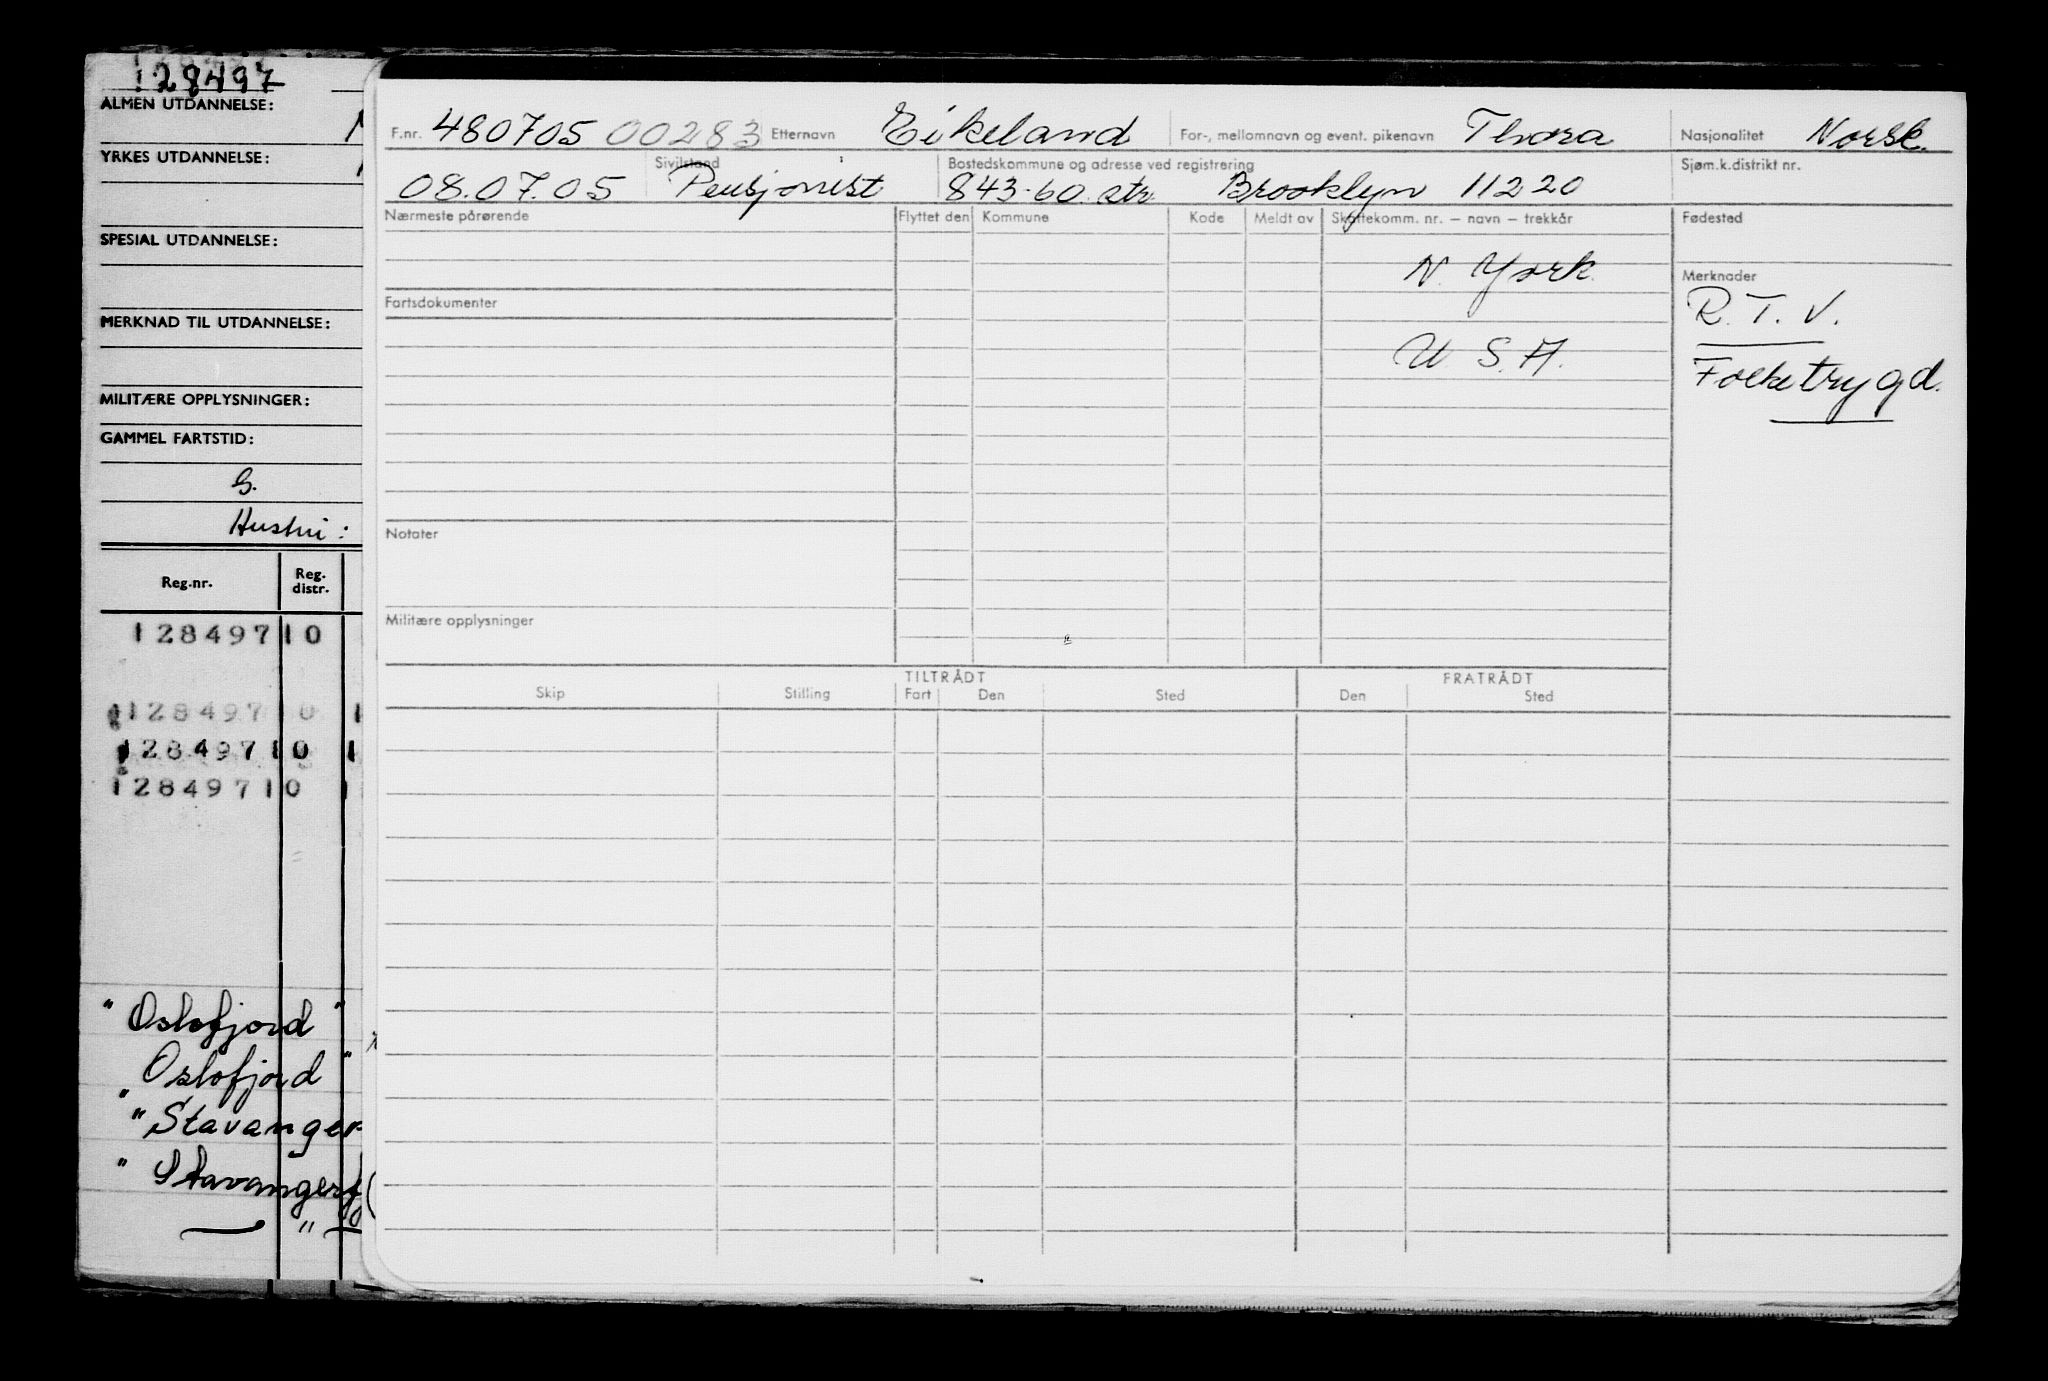 128497
ALMEN UTDANNELSE:
YRKES UTDANNELSE:
SPESIAL UTDANNELSE:
MERKNAD TIL UTDANNELSE:
MILITÆRE OPPLYSNINGER:
GAMMEL FARTSTID:
G.
Hustru:
Reg.nr. Reg. distr.
128497 10
128497 10 1
128497 10 1
128497 10 1
"Oslofjord"
"Oslofjord"
"Stavanger
"Stavangerf
— " —
F.nr. 480705 00283 Etternavn Eikeland For-, mellomnavn og event. pikenavn Thora Nasjonalitet Norsk.
Sivilstand Bostedskommune og adresse ved registrering Sjøm.k.distrikt nr.
08.07.05 Pensjonist 843-60. str. Brooklyn 11220
Nærmeste pårørende Flyttet den Kommune Kode Meldt av Skattekomm. nr. – navn – trekkår Fødested
N. York.
Merknader
Fartsdokumenter
R.T.V.
U.S.A.
Folketrygd.
Notater
Militære opplysninger
TILTRÅDT FRATRÅDT
Skip Stilling Fart Den Sted Den Sted